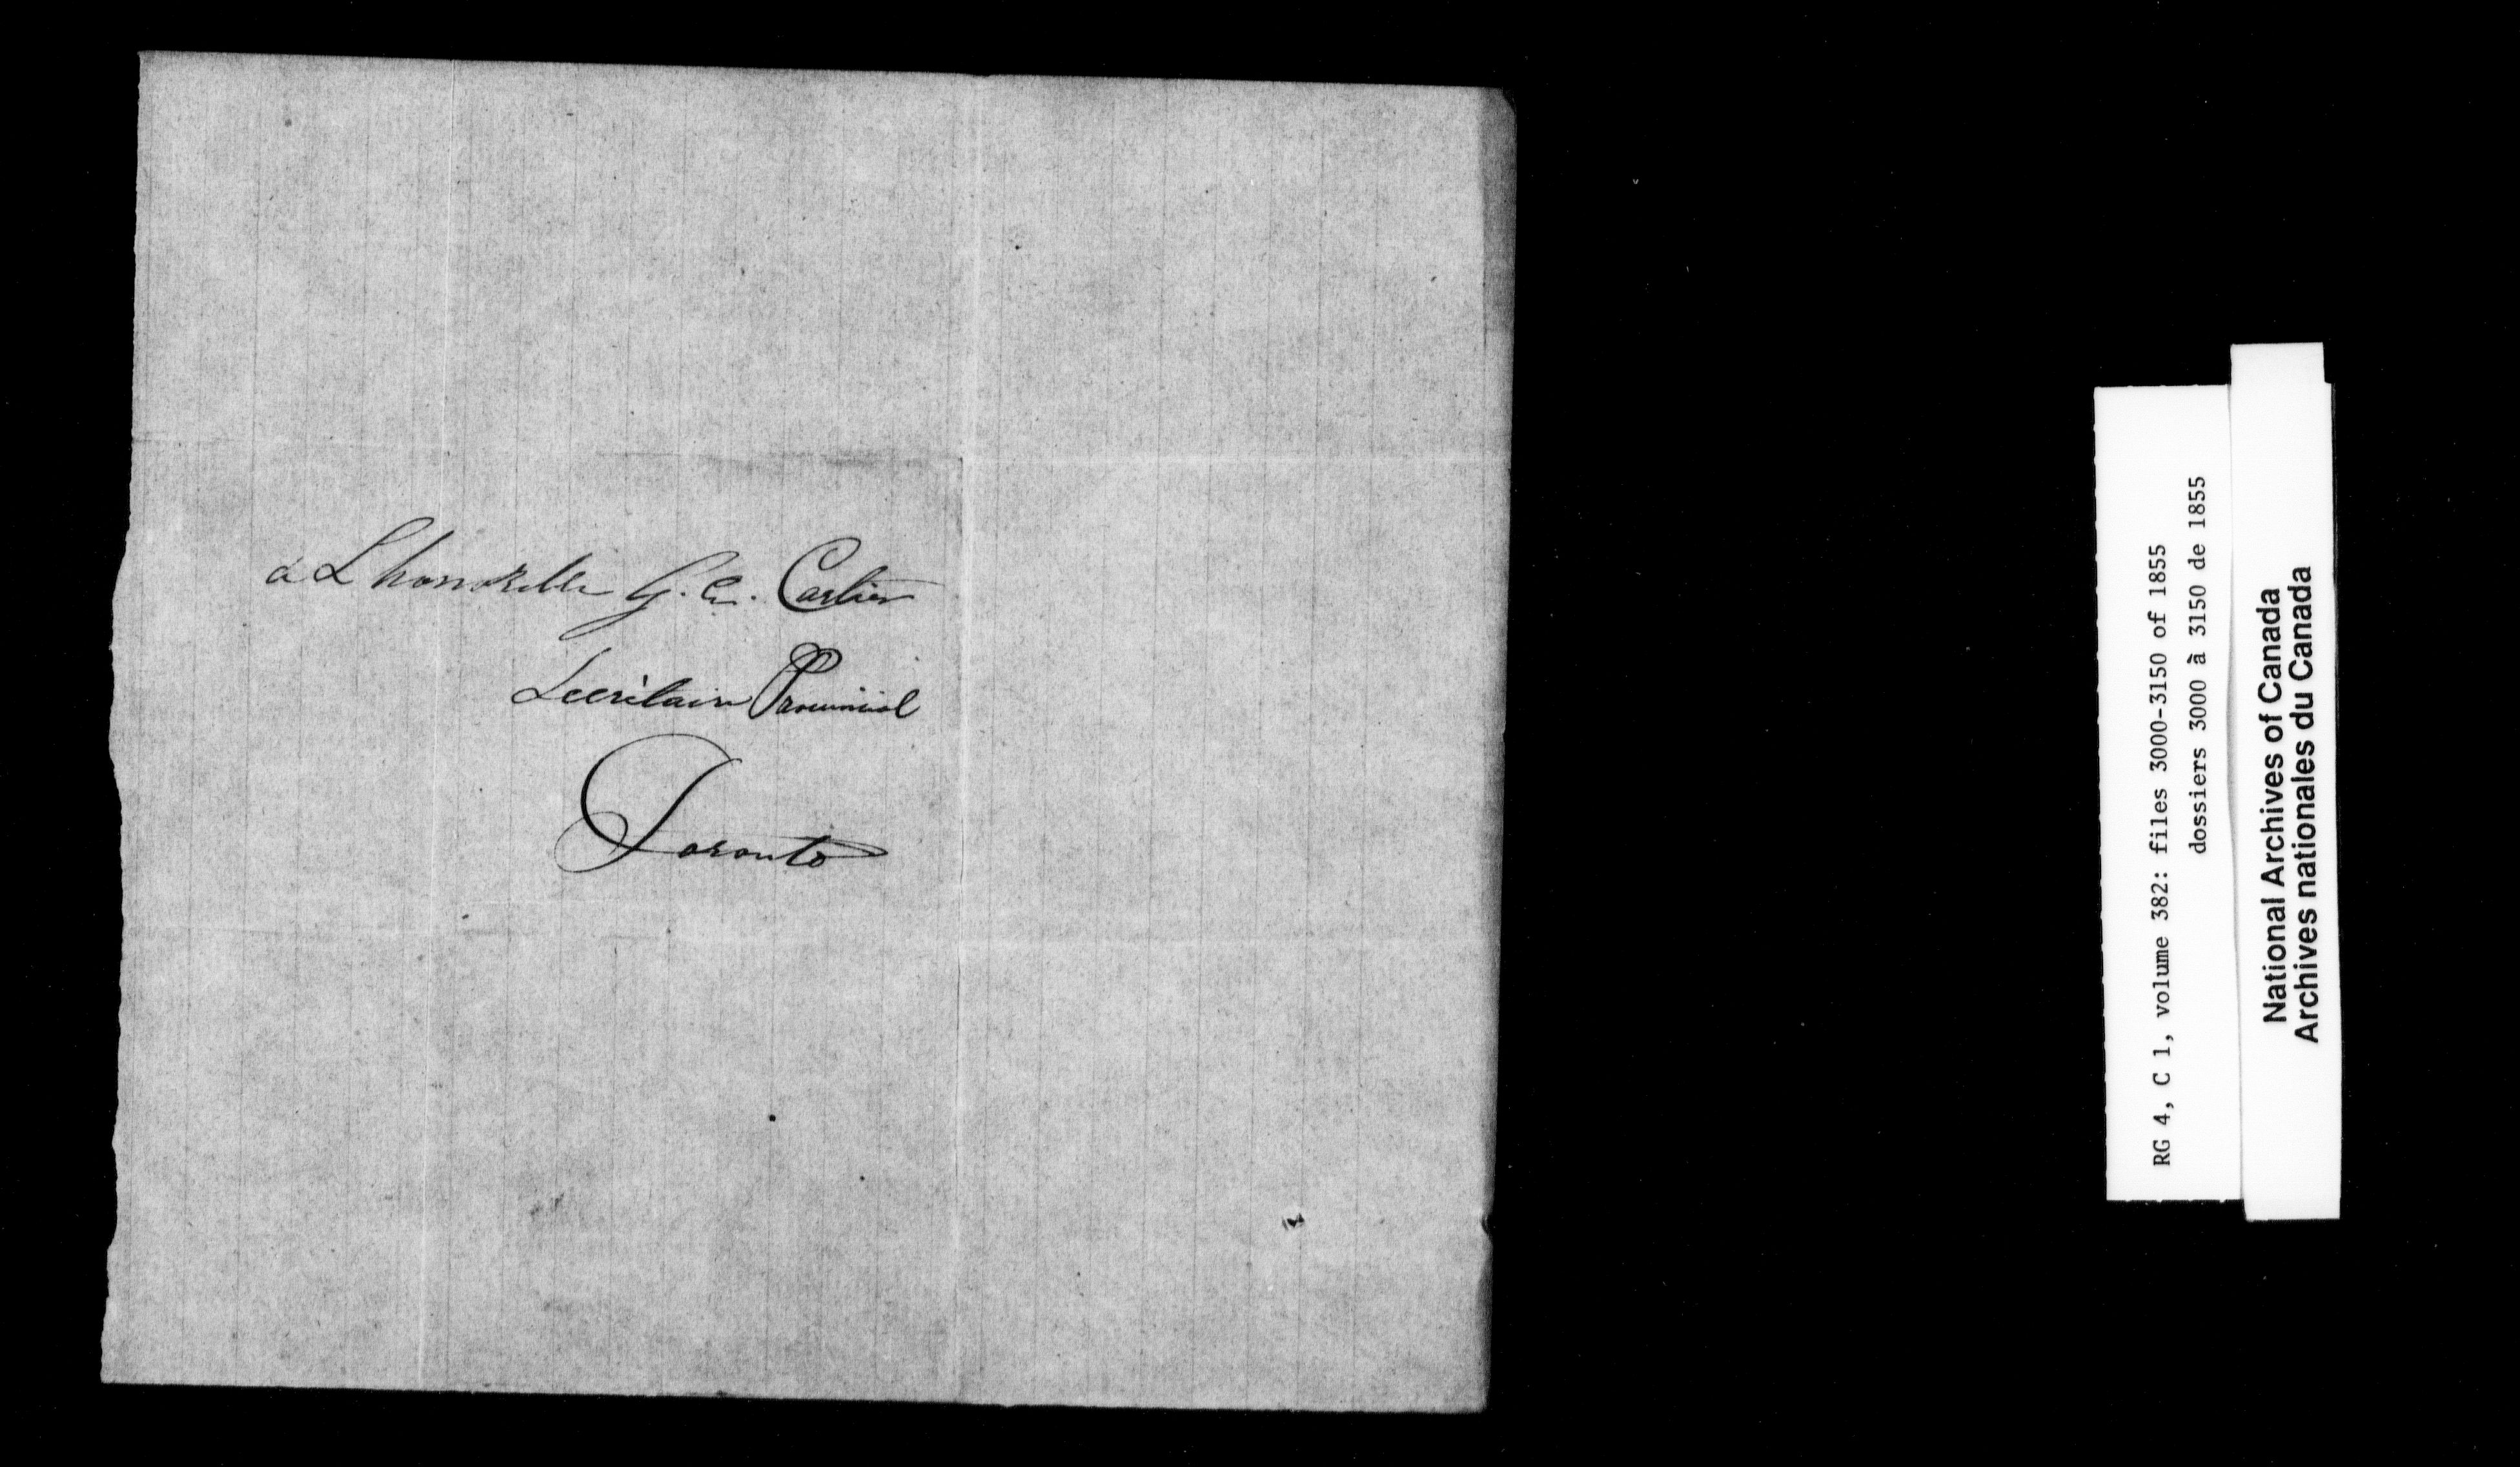 a L'honorable G. E. Cartier
Secrétaire Provincial
Toronto
RG 4, C 1, volume 382: files 3000-3150 of 1855
dossiers 3000 à 3150 de 1855
National Archives of Canada
Archives nationales du Canada